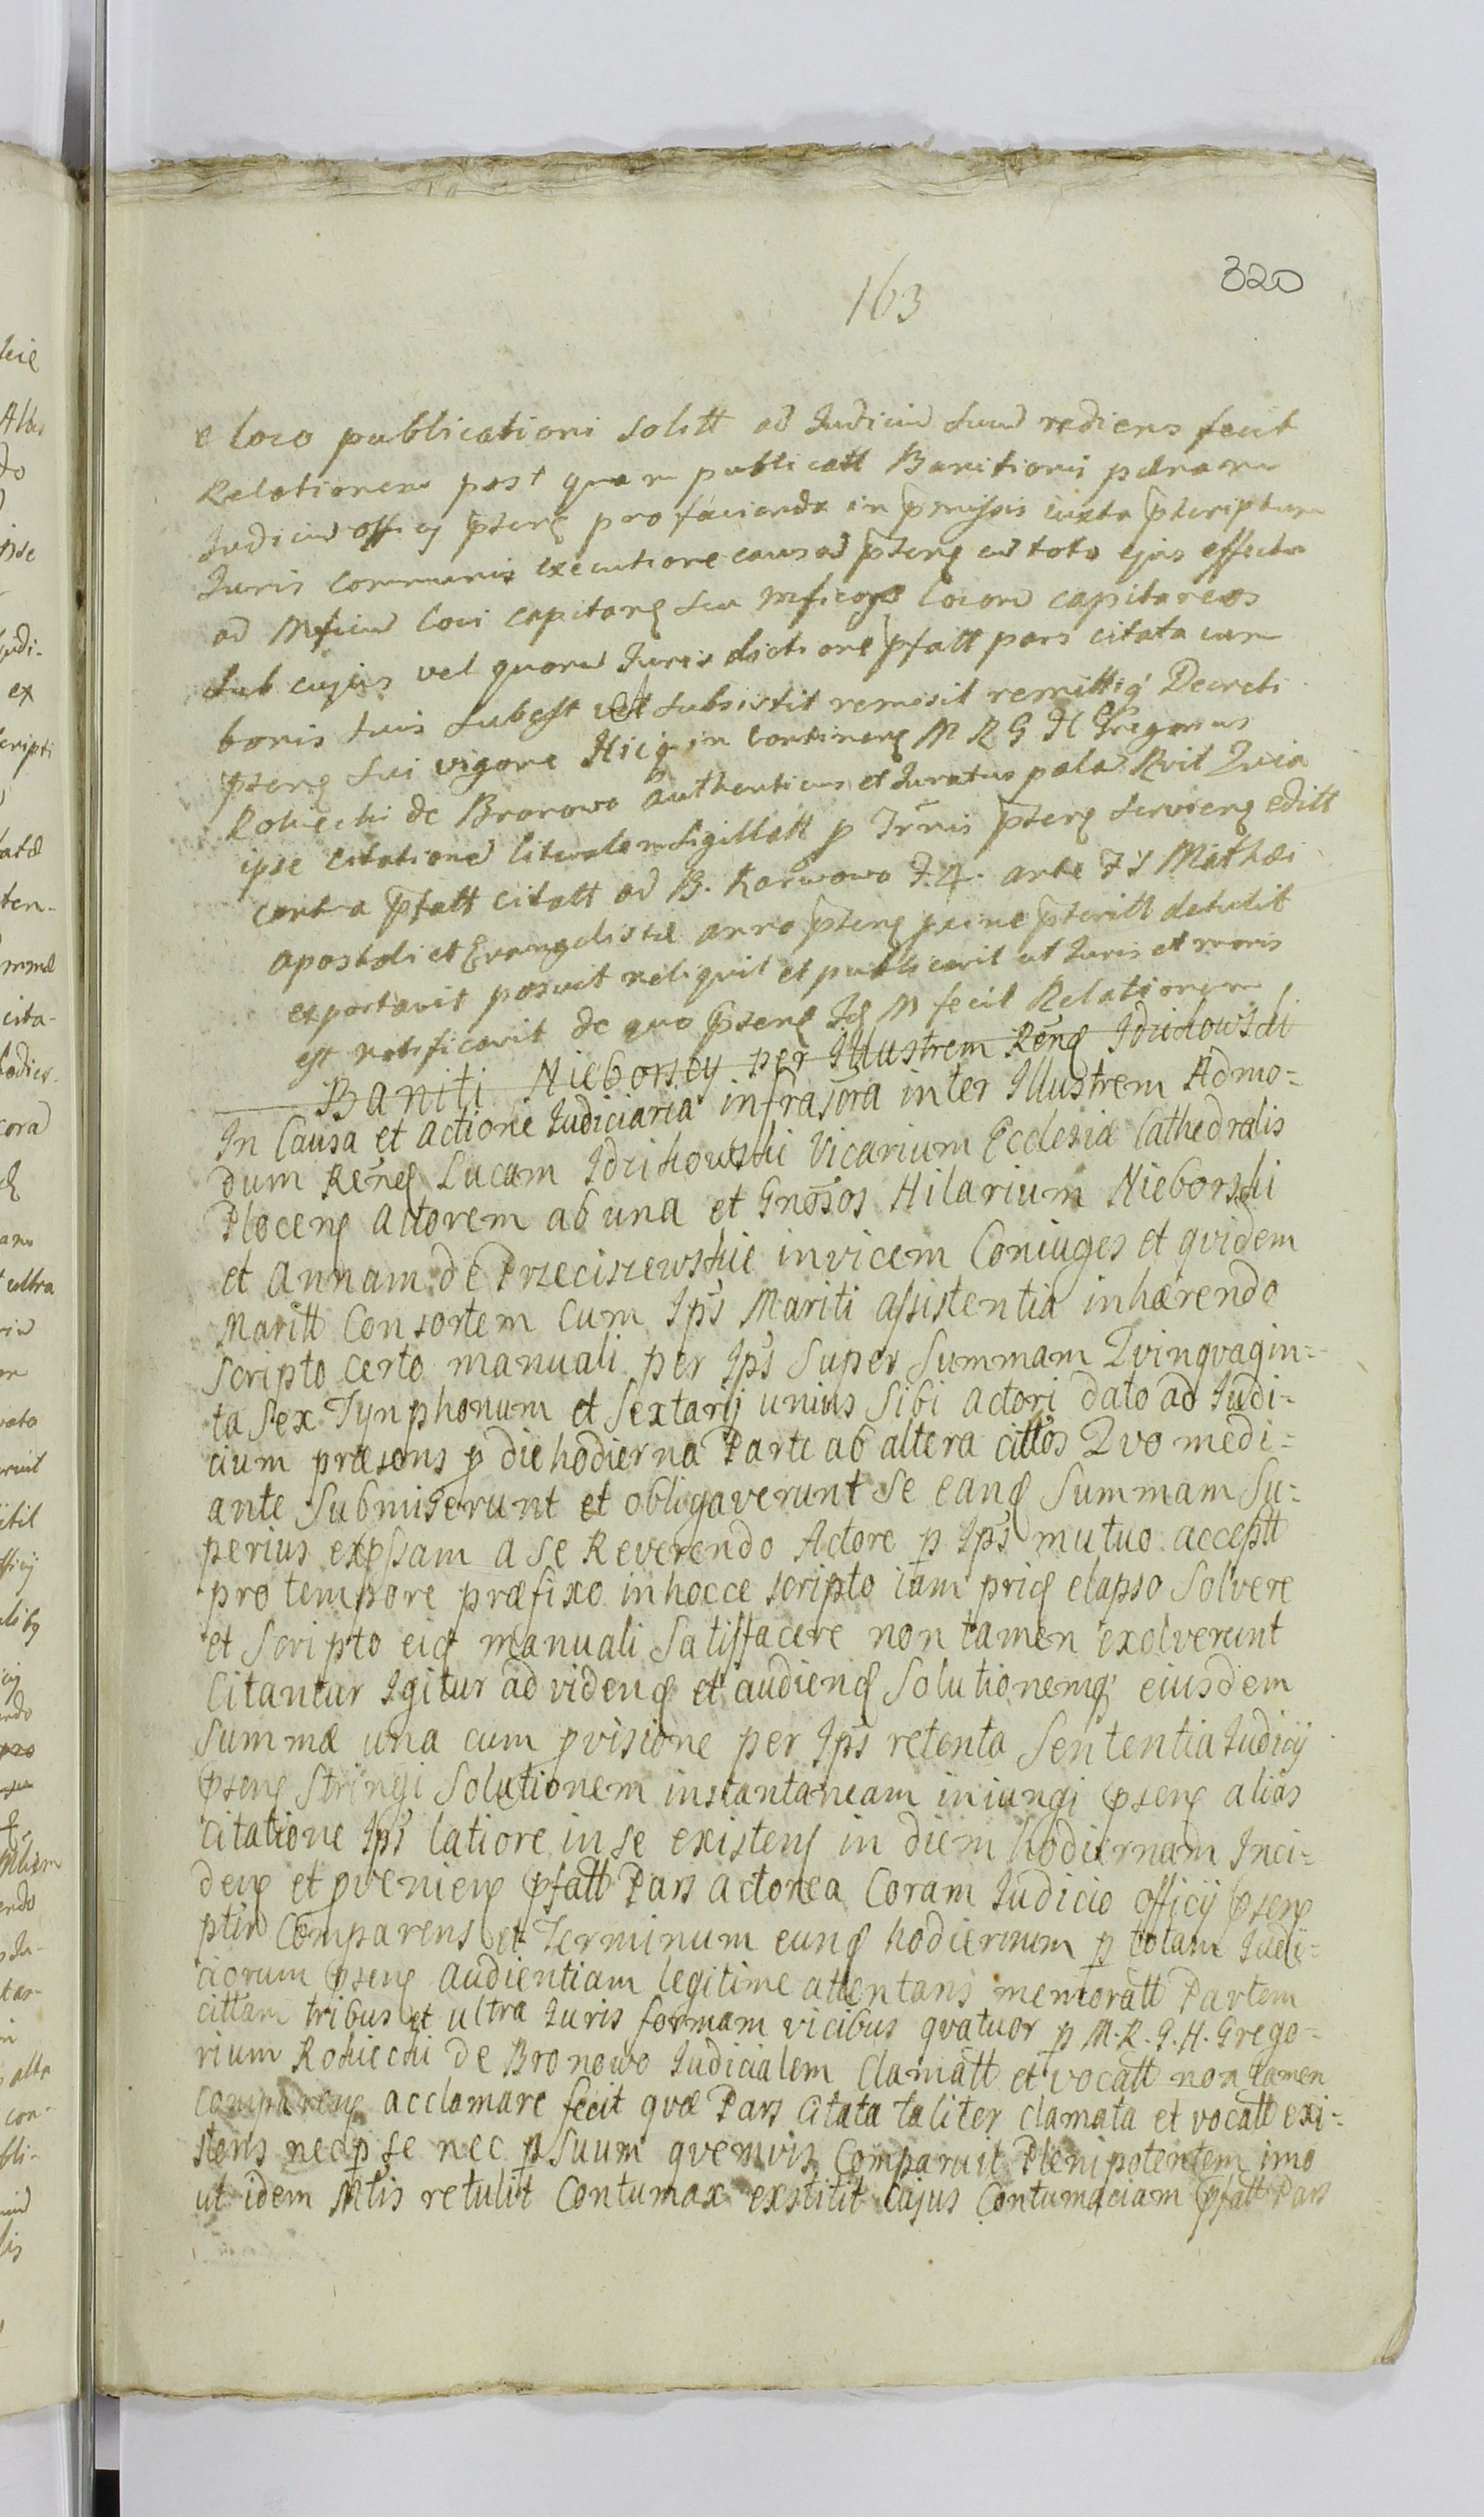 320
163
e loco publicationi solitt ad Judiciu suu rediens fecit
Relationem post quam publicatt Banitionis pænam
Judiciu officij pnteꝫ pro facienda in pmissis iuxta pscriptum
Juris communis executione causad pnteꝫ cu toto ejus effectu
ad Mficu loci capitaneꝫ seu Mficos locoru capitaneos
sub cujus vel quoru Jurisdictione pfatt pars citata cum
bonis suis subest vel subsistit remisit remittitq Decreti
pnteꝫ sui vigore Hicq in continenꝫ M R G H Gregorius
Rokiecki de Bronowo authenticus et Juratus palaꝫ Rvit Quia
ipse citationed literalem sigillatt p Trnis pnteꝫ servienꝫ editt
contra pfatt citatt ad B. Karwowo F. 4. ante F S Mathæi
apostoli et Evangelistæ anno pnteꝫ pnteritt detulit
exportavit posuit reliquit et publicavit ut Juris et moris
est notificavit de quo pnseꝫ Jꝫ M fecit Relationem
Baniti Nieborscy per Illustrem Renꝫ Idzikowski
In Causa et actione Judiciaria infrasora inter Illustrem Admo=
dum Renꝫ Lucam Idzikowski Vicarium Ecclesiæ Cathedralis
Plocenꝫ actorem ab una et Gnosos Hilarium Nieborski
et Annam de Przeciszewskie invicem Coniuges et qvidem
Maritt Consortem Cum Ips Mariti assistentia inhærendo
scripto certo manuali per Ips Super Summam Qvinqvagin=
ta Sex Tynphonum et Sextarij unius Sibi actori dato ad Judi=
cium præsens p die hodierna Parte ab altera cittos Qvo medi=
ante Submiserunt et obligaverunt se eanꝫ Summam Su=
perius expssam a se Reverendo Actore p Ips mutuo acceptt
pro tempore præfixo in hocce scripto iam pricꝫ elapso Solvere
et Scripto eiꝫ manuali Satisfacere non tamen exolverunt
Citantur Igitur ad videnꝫ et audienꝫ Solutionemꝗ eiusdem
Summæ una cum pvisione per Ips retenta Sententia Judicij
psenꝫ Stringi Solutionem instantaneam iniungi psenꝫ alias
citatione Ips latiore in se existenꝫ in diem hodiernam Inci=
denꝫ et pvenienꝫ pfatt Pars actorea Coram Judicio officij psenꝫ
ptin Comparens et Terminum eunꝫ hodiernum p totam Judi=
ciorum psenꝫ audientiam legitime attentans memoratt Partem
cittam tribus et ultra Juris formam vicibus qvatuor p M. R. G. H. Grego=
rium Rokiecki de Bronowo Judicialem Clamatt et vocatt non tamen
comparenꝫ acclamare fecit qvæ Pars Citata taliter clamata et vocatt exi=
stens nec p se nec p Suum qvemvis Comparuit Plenipotentem imo
ut idem Mtis retulit Contumax exstitit Cujus Contumaciam pfatt Pars